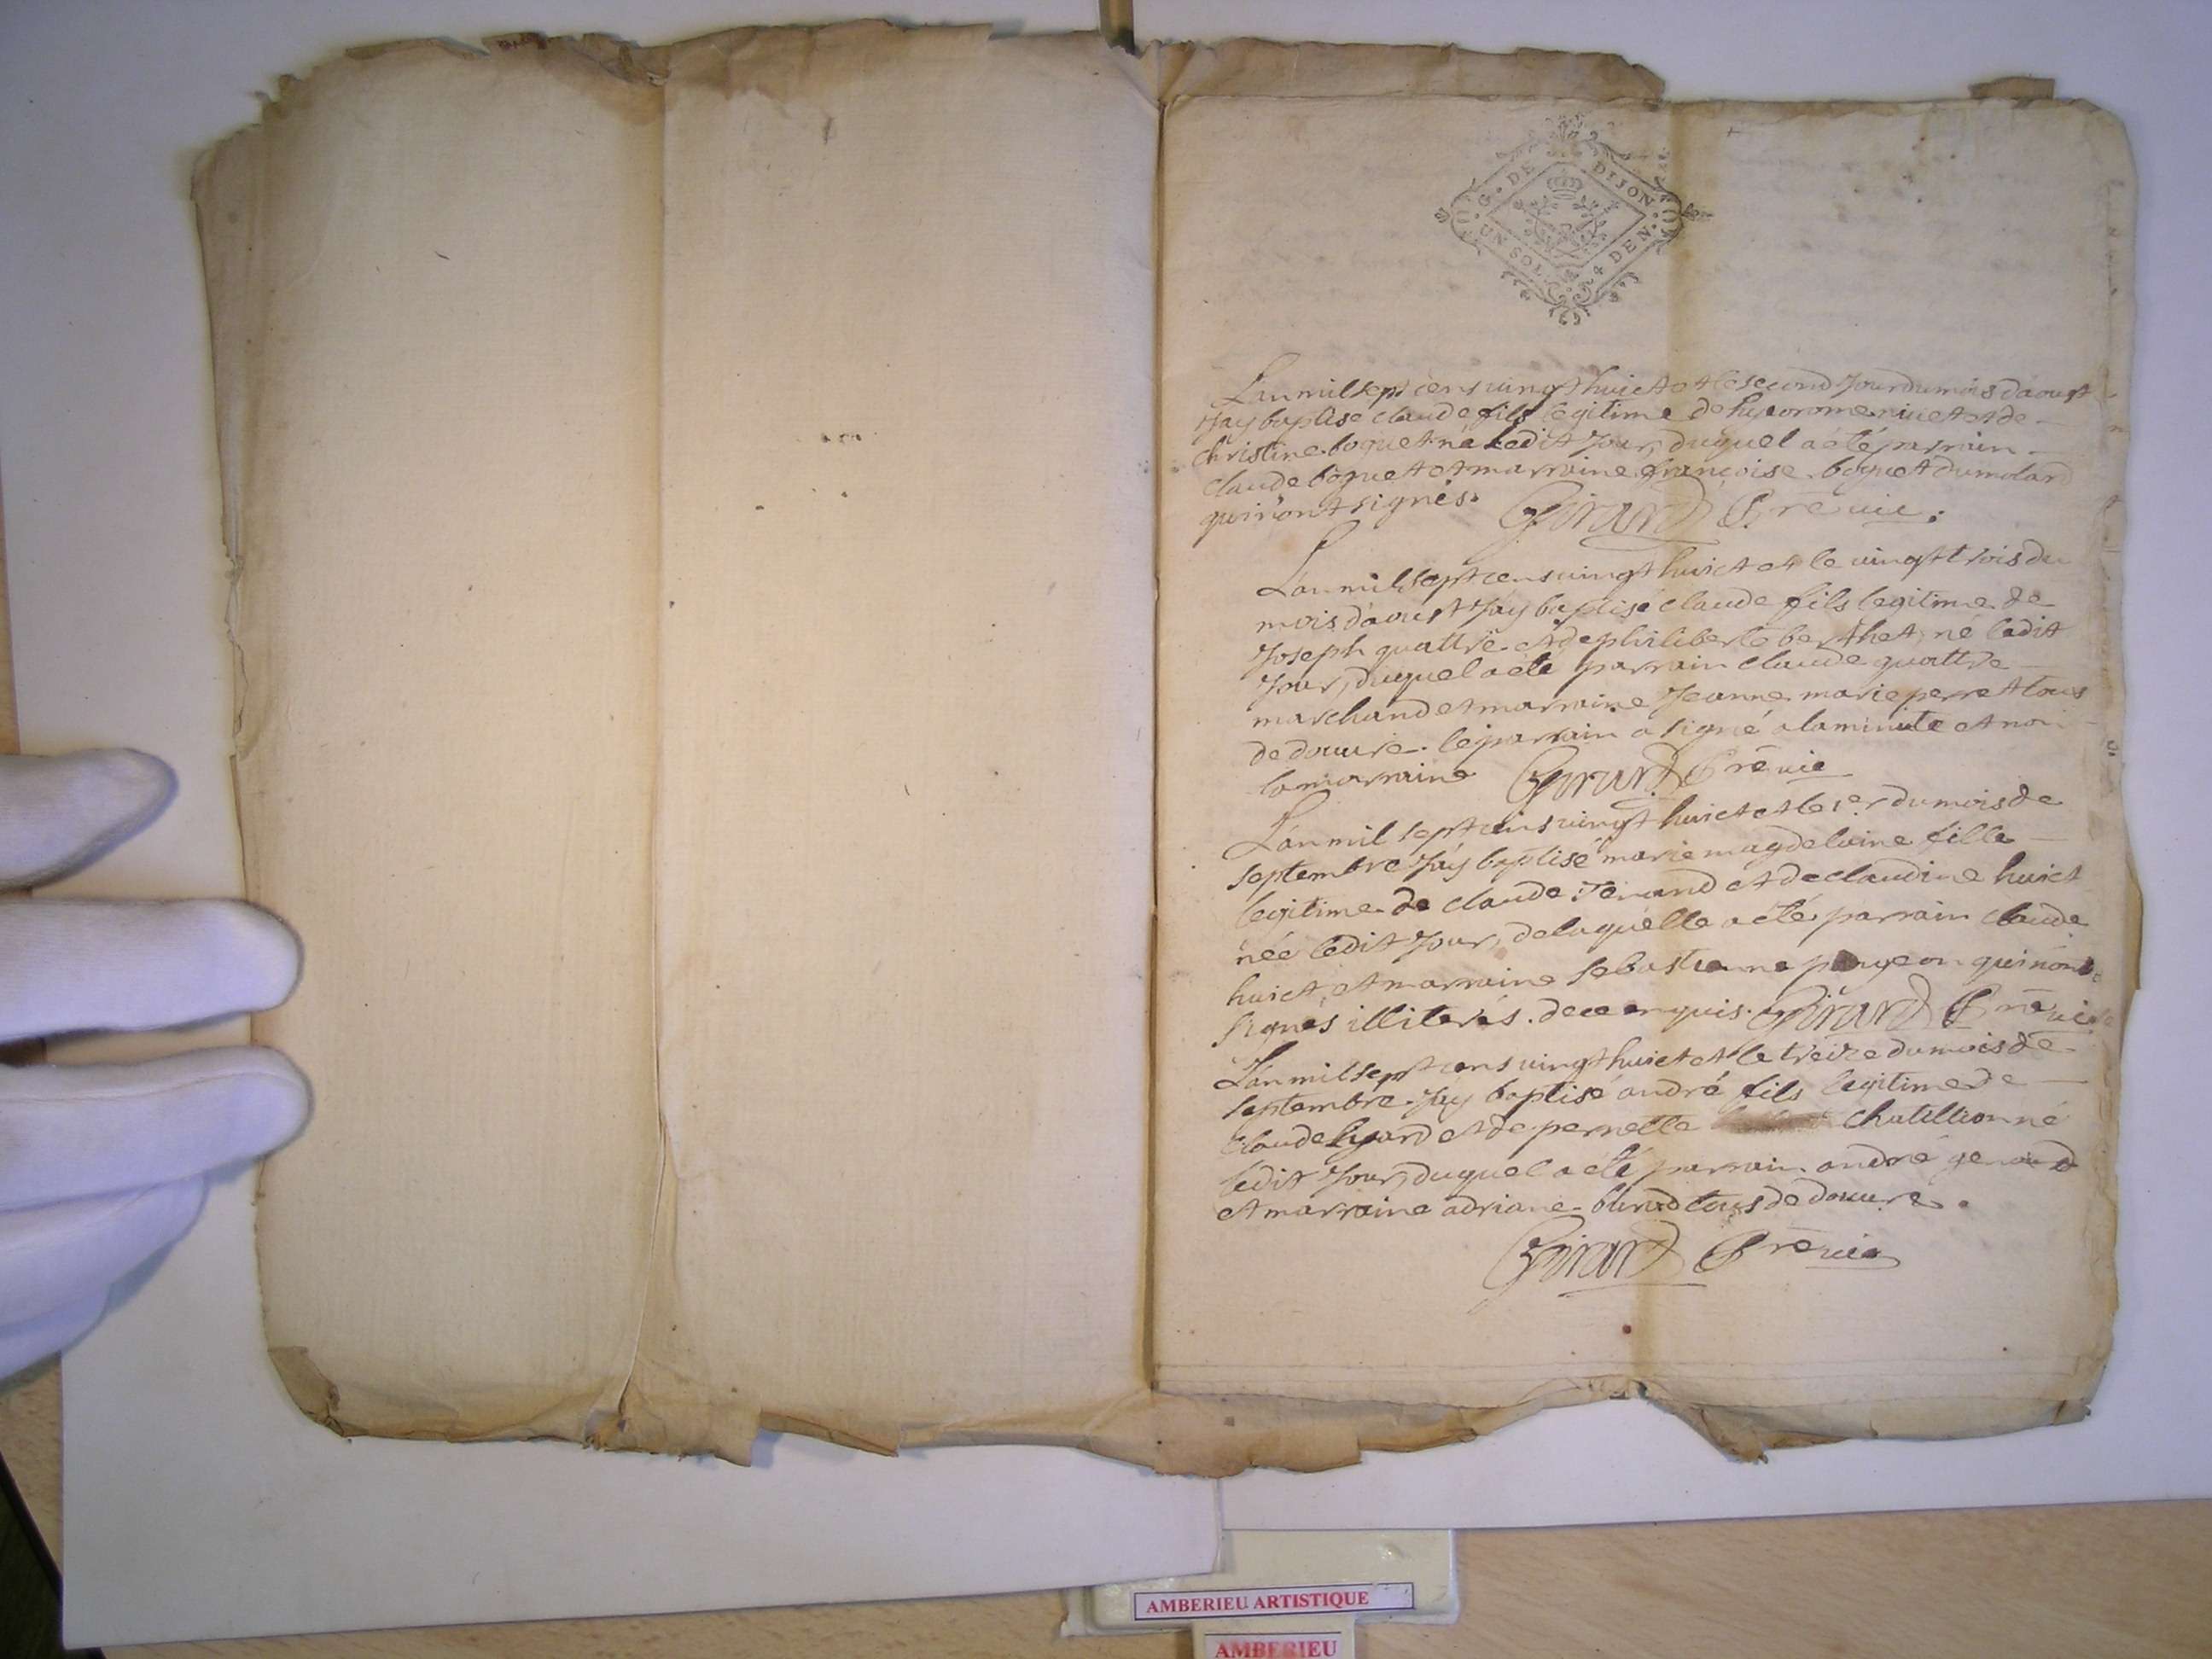 G. DE DIJON
UN SOL 4 DEN.
Lan mil sept cens vingt huict et le second Jour du mois d'aoust
Jay baptisé claude fils legitime de niuet et de
christine boquet né ledit Jour, duquel a été parrain
claude boquet et marraine françoise boquet du molard
qui n'ont signés. Girard Prê vic.
L'an mil sept cens vingt huict et le vingt trois du
mois d'aoust Jay baptisé claude fils legitime de
Joseph quattre et de philiberte berthet, né ledit
Jour, duquel a été parrain claude quattre
marchand et marraine Jeanne marie perret tous
de douure. le parrain a signé a la minute et non
la marraine Girard Prê vic
L'an mil sept cens vingt huict et le 1er du mois de
septembre Jay baptisé marie magdelaine fille
legitime de claude Tenand et de claudine huict
née ledit Jour, de laquelle a été parrain claude
huict, et marraine sebastienne pongeon qui n'ont
signes illiterés. de ce enquis. Girard Prê vic
L'an mil sept cens vingt huict et le treize du mois de
septembre Jay baptisé andré fils legitime de
claude et de pernette chatillion né
ledit Jour, duquel a été parrain andré genoud
et marraine adriane tous de douure.
Girard Prê vic
AMBERIEU ARTISTIQUE
AMBERIEU